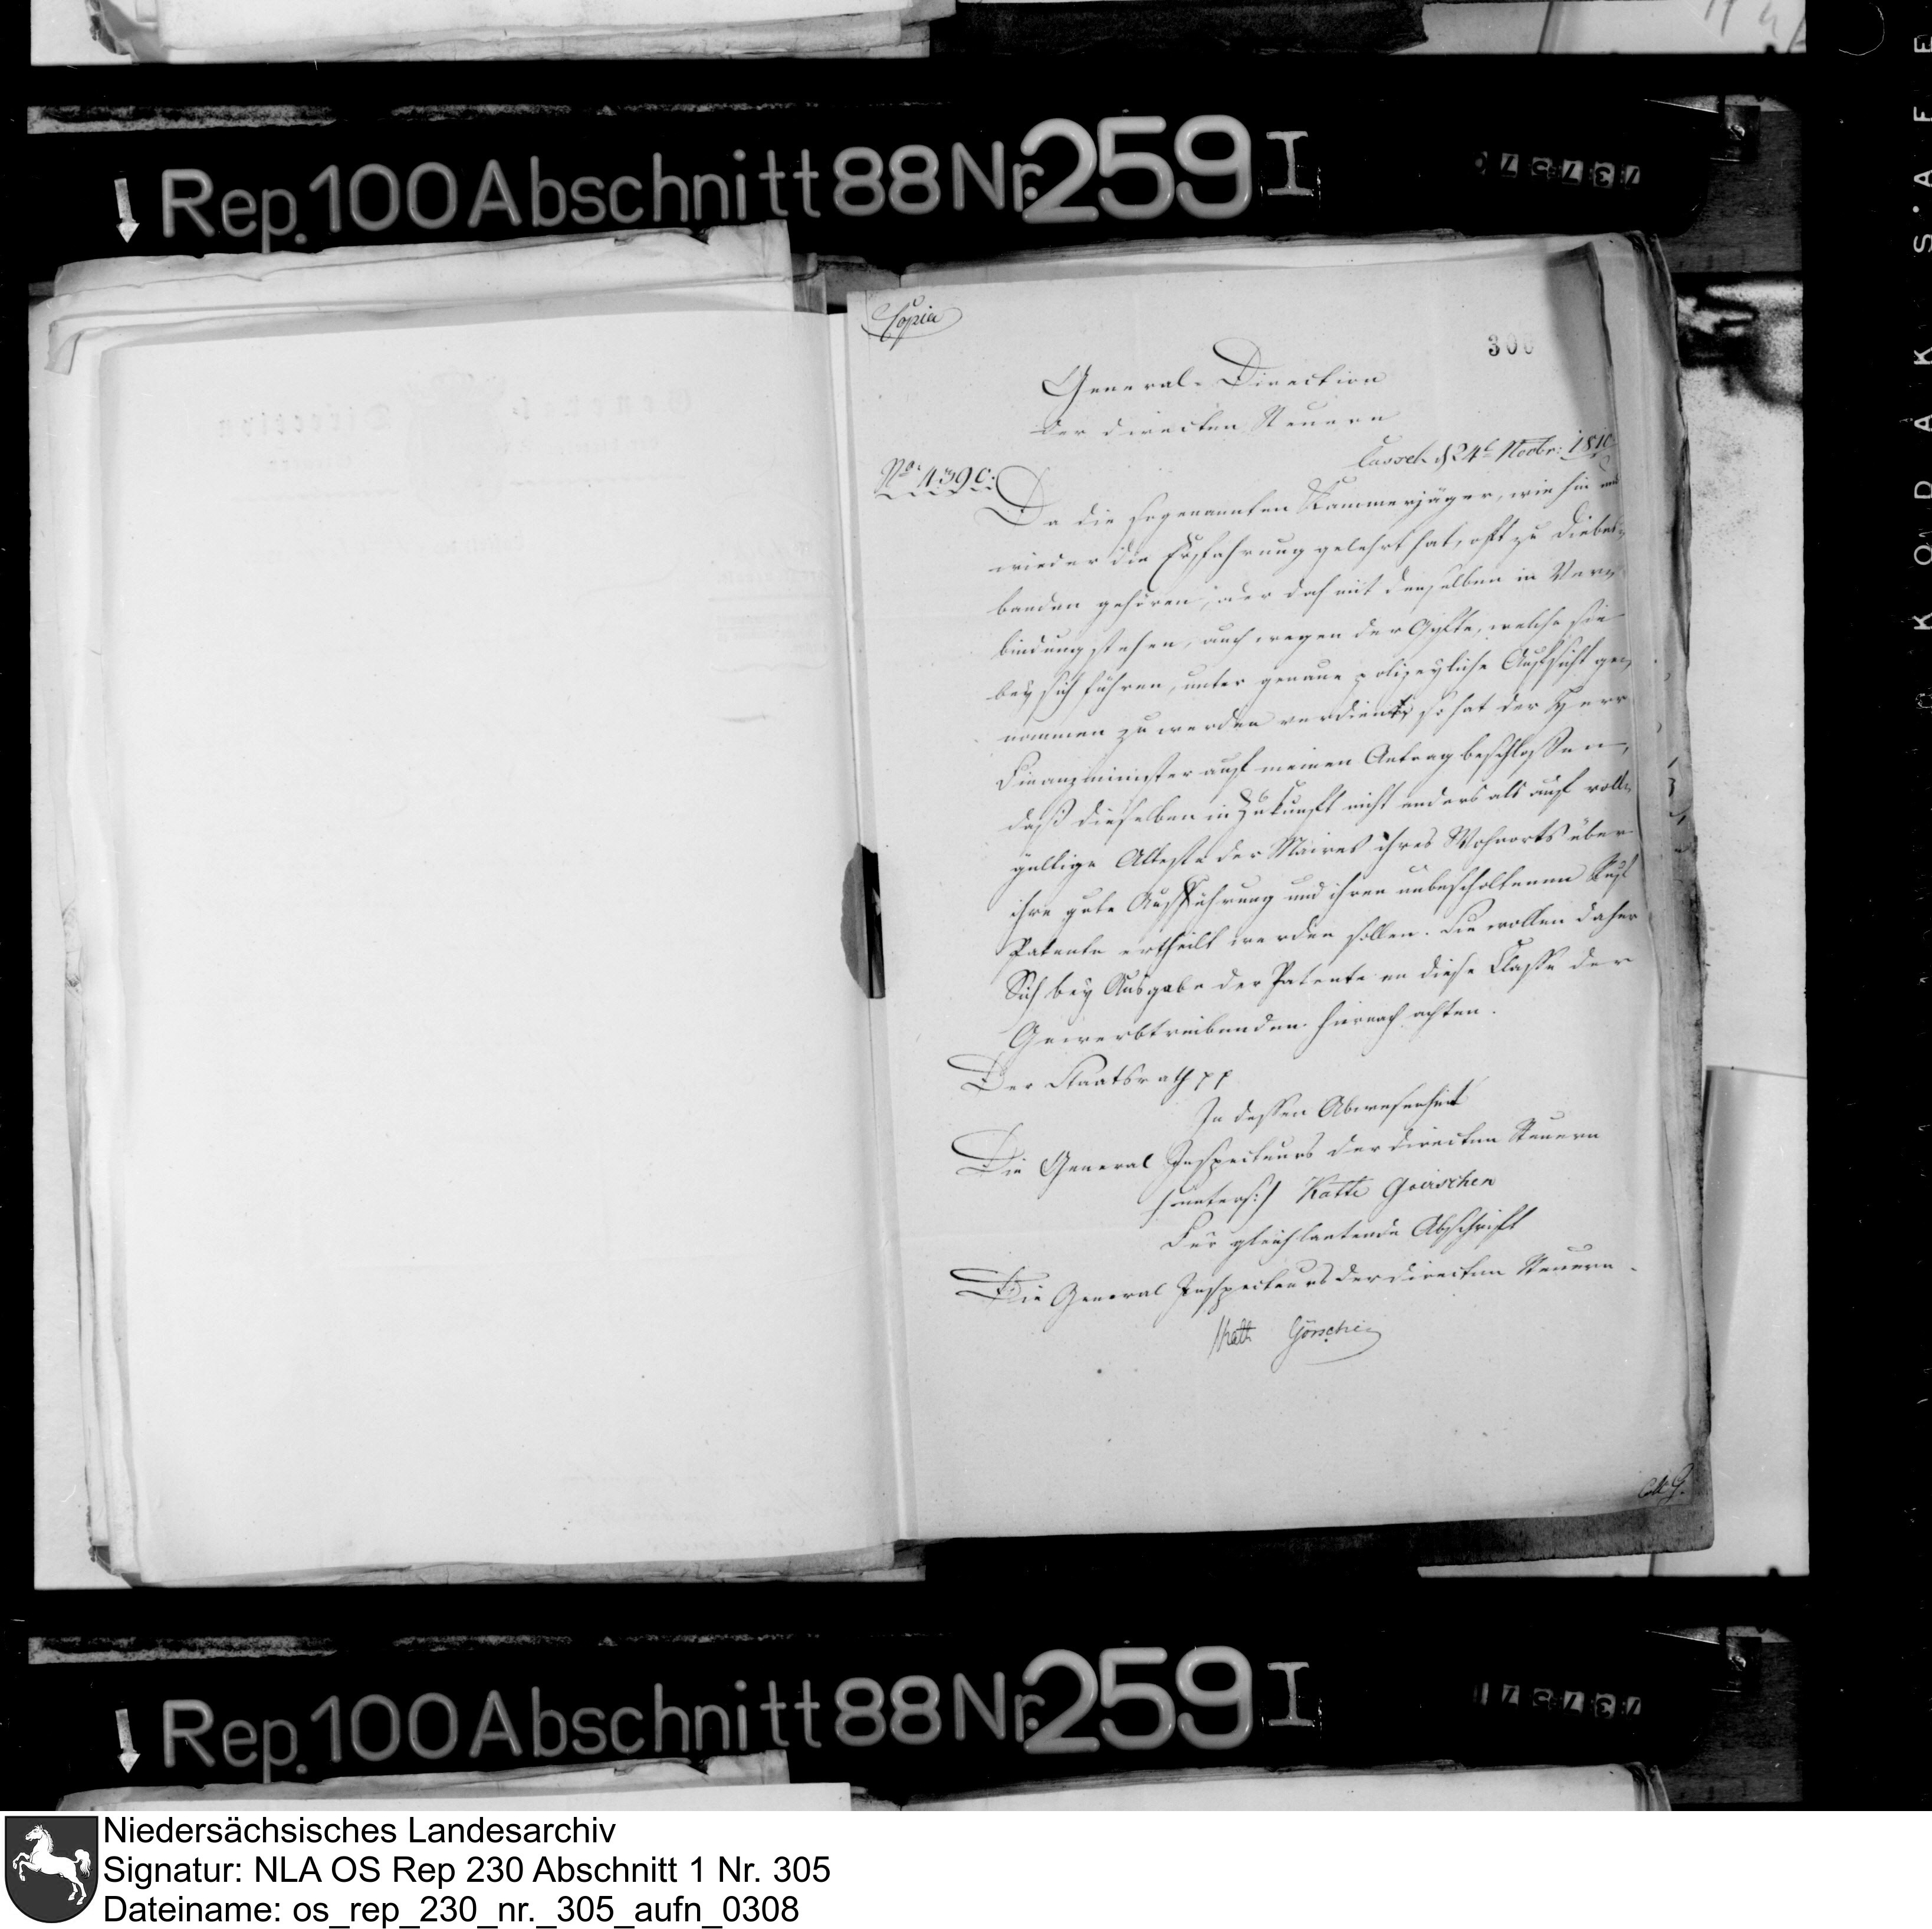 Rep. 100 Abschnitt 88 Nr. 259 I
Copia
300
General-Direction
der directen Steuern
Cassel d 24t Novbr: 1810
No. 439 C.
Da die sogenannten Kammerjäger, wie hin und
wieder die Erfahrung gelehrt hat, oft zu Diebes-
banden gehören, oder doch mit denselben in Ver-
bindung stehen, auch wegen der Gifte, welche sie
bey sich führen, unter genaue polizeyliche Aufsicht ge-
nommen zu werden verdienen, so hat der Herr
Finanzminister auf meinen Antrag beschloßen,
daß dieselben in Zukunft nicht anders als auf voll-
gültige Atteste der Maires ihres Wohnorts über
ihre gute Aufführung und ihren unbescholtenen Ruf
Patente ertheilt werden sollen. Sie wollen daher
Sich bey Ausgabe der Patente an diese Classe der
Gewerbtreibenden hiernach achten.
Der Staatsrath pp
In dessen Abwesenheit
Die General Inspecteurs der directen Steuern
(unters:) Katte Goerschen
Für gleichlautende Abschrift
Die General Inspecteurs der directen Steuern.
Katte Görschen
Rep. 100 Abschnitt 88 Nr. 259 I
Niedersächsisches Landesarchiv
Signatur: NLA OS Rep 230 Abschnitt 1 Nr. 305
Dateiname: os_rep_230_nr._305_aufn_0308